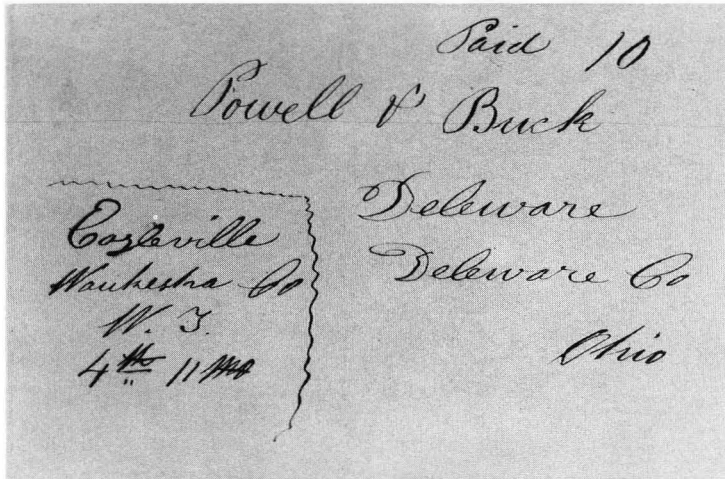 Paid 10
Powell & Buck
Deleware
Deleware Co
Ohio
Eagleville
Waukesha Co
W. T.
4th 11 mo